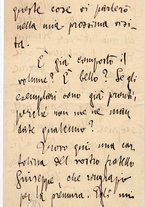 queste cose vi parlerò
nella mia prossima visi-
ta.
È già composto il
volume? È bello? Se gli
esemplari sono già pronti,
perché non me ne man-
date qualcuno?
Trovo qui una car-
tolina del vostro fratello
Giuseppe, che ringrazio
per la premura. Egli mi